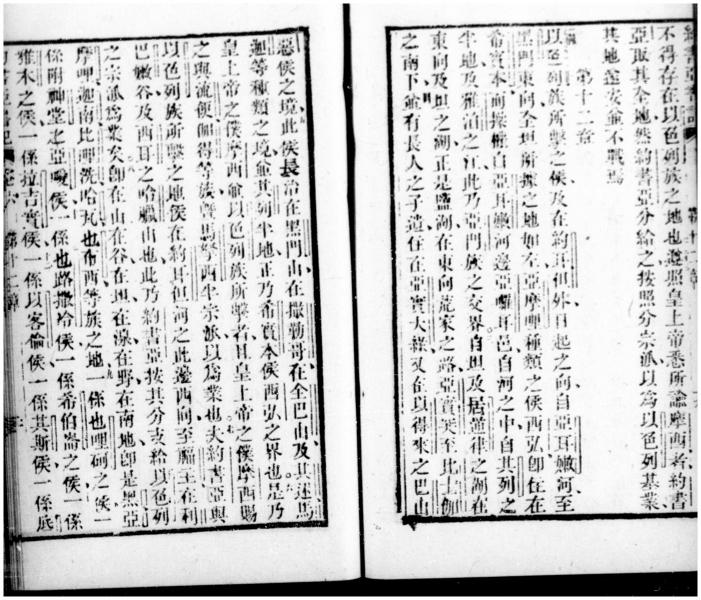 不得存在以色列族之地也遵照皇上帝悉所諭摩西者約書
亞取其全地然約書亞分給之按照分宗派以為以色列基業
其地遂安並不戰焉
第十二章
以色列族所擊之侯及在約耳但外日起之向自亞耳嫩河至
黑門東向全坦所據之地如左亞摩哩種類之侯西弘卽住在
希實本向操權自亞耳嫩河邊亞囉耳邑自河之中自其列之
半地及雅泊之江此乃亞門族之交界自坦及居董律之湖在
東向及坦之湖正是鹽湖在東向荒家之路亞實
之南下並有長人之子遺住在亞實大綠又在以得來之巴山
惡侯之境此侯長治在黑門山在撒勒哥在全巴山及其述馬
迦等種類之境並其列半地正乃希實本侯西弘之界也是乃
皇上帝之僕摩西並以色列族所擊者且皇上帝之僕摩西賜
之與流便伽得等族曁馬拏西半宗派以為業也夫約書亞與
以色列族所擊之地侯在約耳但河之此邊西向至
巴嫩谷及西耳之哈臘山也此乃約書亞按其分支給以色列
之宗派為業矣卽在山在谷在坦在源在野在南地卽是黑亞
摩哩迦南比哩洗哈瓦也布西等族之地一係也哩砢之侯一
係附神堂之亞噯侯一係也路撒冷侯一係希伯崙之侯一係
雅末之侯一係拉吉實侯一係以客倫侯一係其斯侯一係底